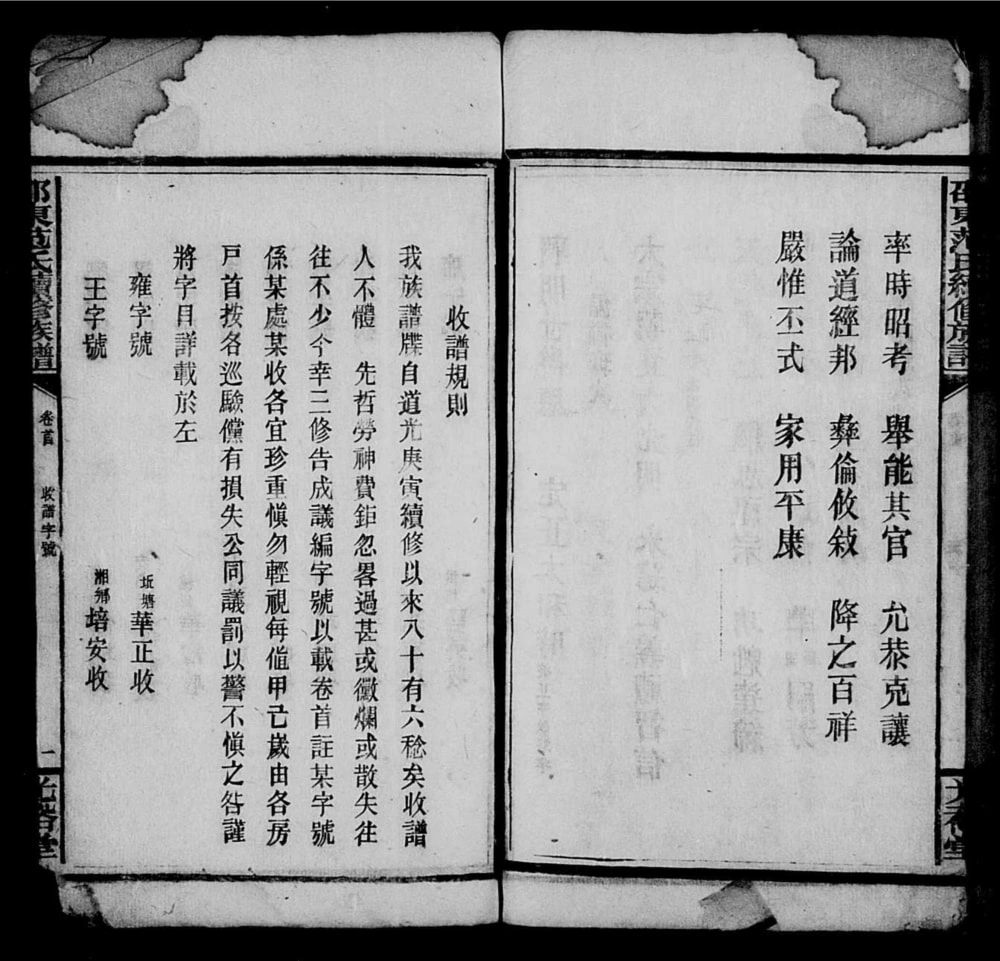 率時昭考 舉能其官 允恭克讓
論道經邦 彝倫攸敍 降之百祥
嚴惟丕式 家用平康
收譜規則
我族譜牒自道光庚寅續修以來八十有六稔矣收譜
人不體 先哲勞神費鉅忽畧過甚或黴爛或散失往
往不少今幸三修告成議編字號以載卷首註某字號
係某處某收各宜珍重愼勿輕視每值甲己歲由各房
戶首按各巡驗儻有損失公同議罰以警不愼之咎謹
將字目詳載於左
雍字號 坵塘華正收
王字號 湘鄉培安收
邵東范氏續修族譜 卷首 收譜字號 一